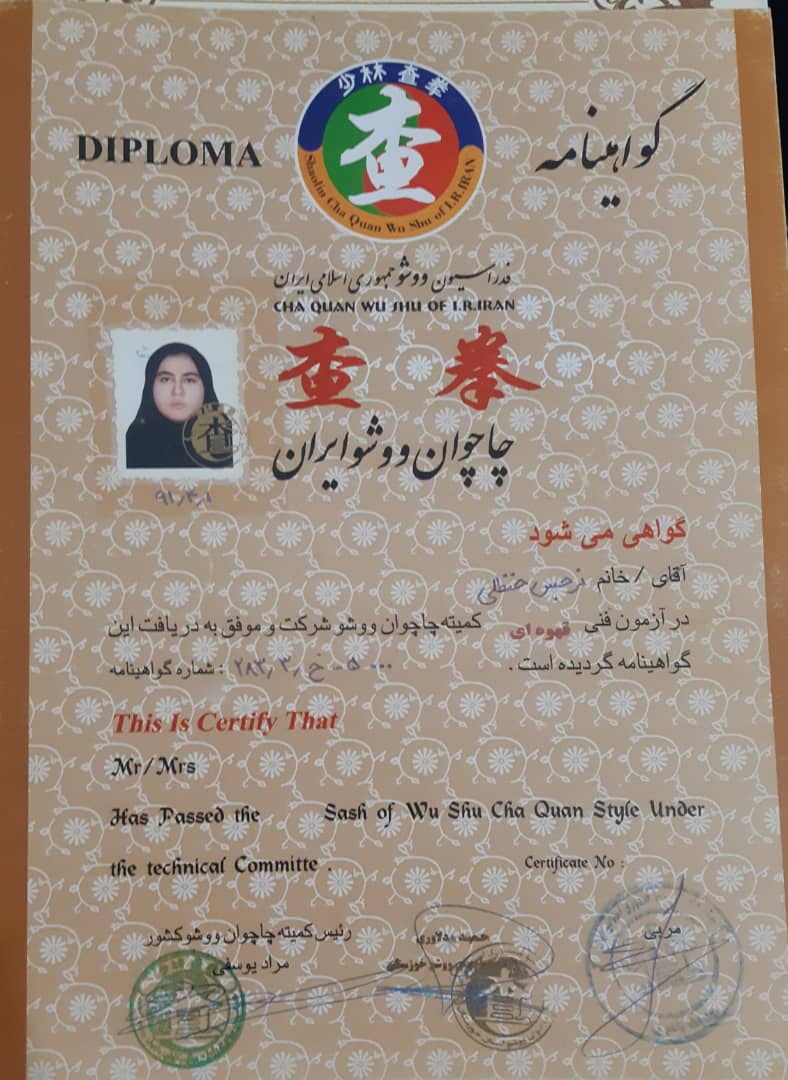 少林查拳
查
Shaolin Cha Quan Wu Shu of I.R.IRAN
DIPLOMA
گواهینامه
فدراسیون ووشو جمهوری اسلامی ایران
CHA QUAN WU SHU OF I.R.IRAN
查 拳
چاچوان ووشو ایران
۹۱٫۴٫۸
گواهی می شود
آقای / خانم نرجس حنظلی
در آزمون فنی قهوه ای کمیته چاچوان ووشو شرکت و موفق به دریافت این
گواهینامه گردیده است. شماره گواهینامه :
This Is Certify That
Mr/Mrs
Has Passed the Sash of Wu Shu Cha Quan Style Under
the technical Committe .
Certificate No :
رئیس کمیته چاچوان ووشو کشور
مراد یوسفی
حمید دلاوری
مربی